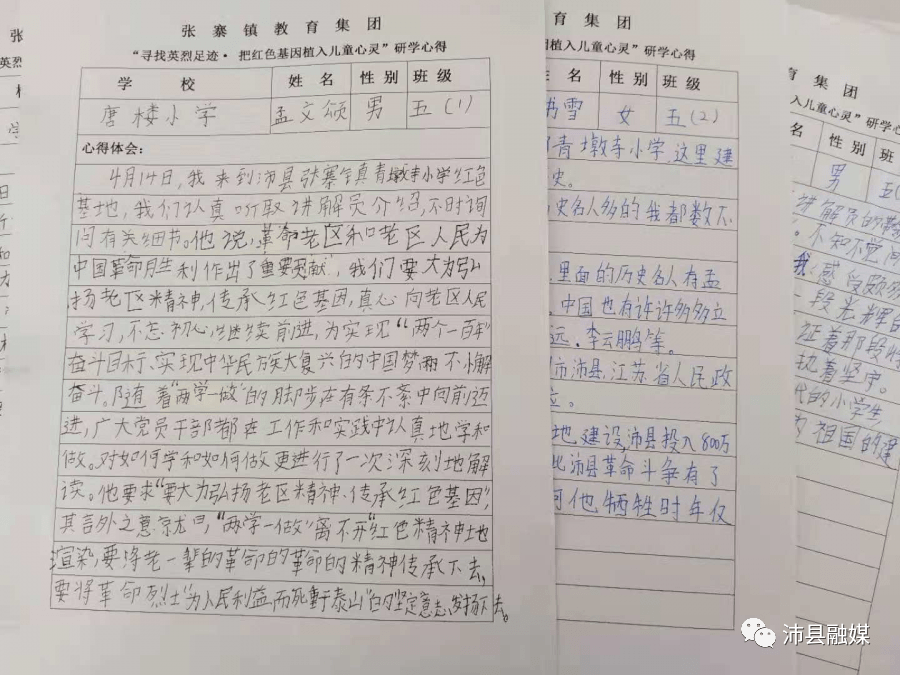 张寨镇教育集团
“寻找英烈足迹· 把红色基因植入儿童心灵”研学心得
学 校 姓 名 性 别 班 级
唐楼小学 孟文颂 男 五(1)
心得体会:
4月14日,我来到沛县张寨镇青墩寺小学红色
基地,我们认真听取讲解员介绍,不时询
问有关细节。他说,革命老区和老区人民为
中国革命胜利作出了重要贡献”,我们要大力弘
扬老区精神,传承红色基因,真心向老区人民
学习,不忘初心,继续前进,为实现“两个一百年”
奋斗目标、实现中华民族大复兴的中国梦而不懈
奋斗。随着“两学一做”的脚步在有条不紊中向前迈
进,广大党员干部都在工作和实践中认真地学和
做。对如何学和如何做更进行了一次深刻地解
读。他要求“要大力弘扬老区精神、传承红色基因”,
其言外之意就是,“两学一做”离不开“红色精神”地
渲染,要将老一辈的革命的革命的精神传承下去,
要将革命烈士“为人民利益而死重于泰山”的坚定意志发扬下去。
因植入儿童心灵”研学心得
性 别 班 级
雪 女 五(2)
青墩寺小学,这里建
史。
史名人多的我都数不
里面的历史名人有孟
中国也有许许多多立
远、李云鹏等。
市沛县,江苏省人民政
立。
地建设,沛县投入800万
比沛县革命斗争有了
何他牺牲时年仅
育 集 团
入儿童心灵”研学心
名 性 别 班
男 五(
讲解员的
。不知不觉间
我感受颇
一段光辉的
着那段
执着坚守。
代的小学生
为祖国的建
张
沛县融媒